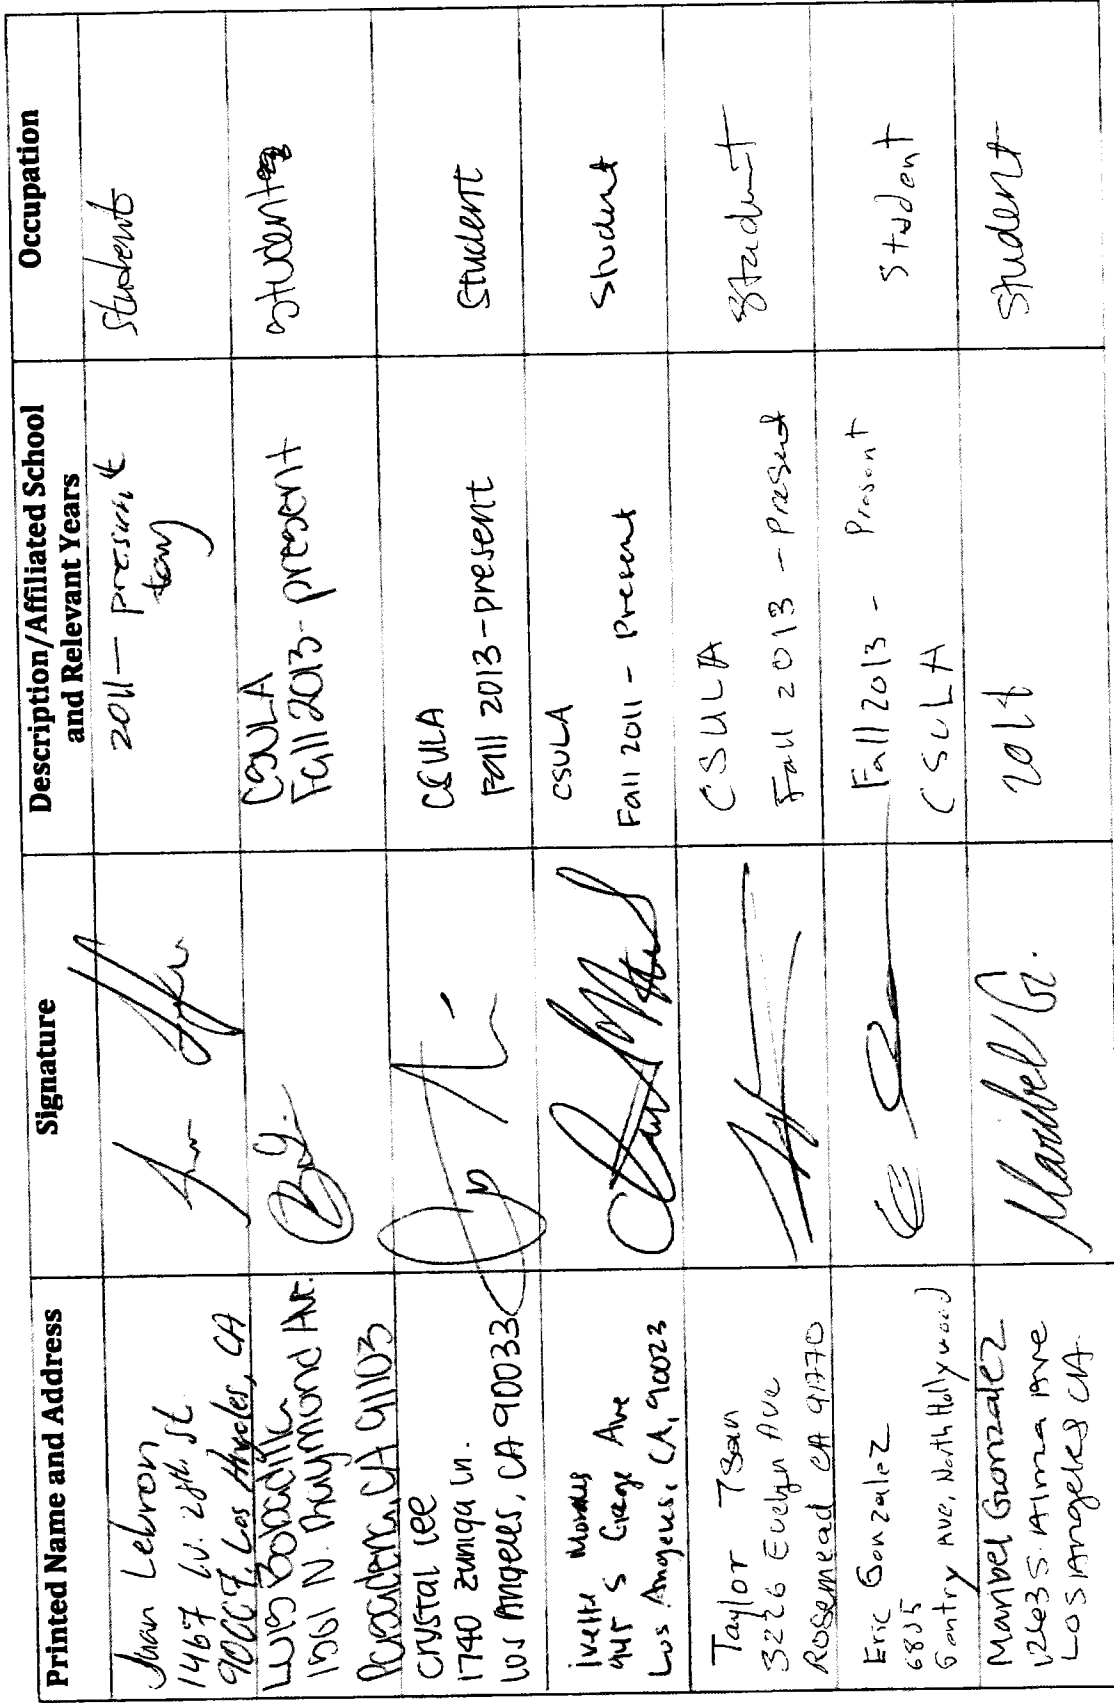 Printed Name and Address
Signature
Description/Affiliated School
and Relevant Years
Occupation
Juan Lebron
1467 W. 28th St
90007, Los Angeles, CA
2011 - present
day
student
Luis Bobadilla
1561 N. Raymond Ave.
Pasadena, CA 91103
CSULA
Fall 2013 - present
student
Crystal Lee
1740 Zuniga Ln.
Los Angeles, CA 90033
CSULA
Fall 2013 - present
Student
Ivette Morales
S Ave
Los Angeles, CA, 90023
CSULA
Fall 2011 - Present
Student
Taylor
3226 Evelyn Ave
Rosemead CA 91770
CSULA
Fall 2013 - Present
Student
Eric Gonzalez
6835
Gentry Ave, North Hollywood
Fall 2013 - Present
CSULA
Student
Maribel Gonzalez
1263 S. Alma Ave
Los Angeles CA
Maribel G.
2014
Student